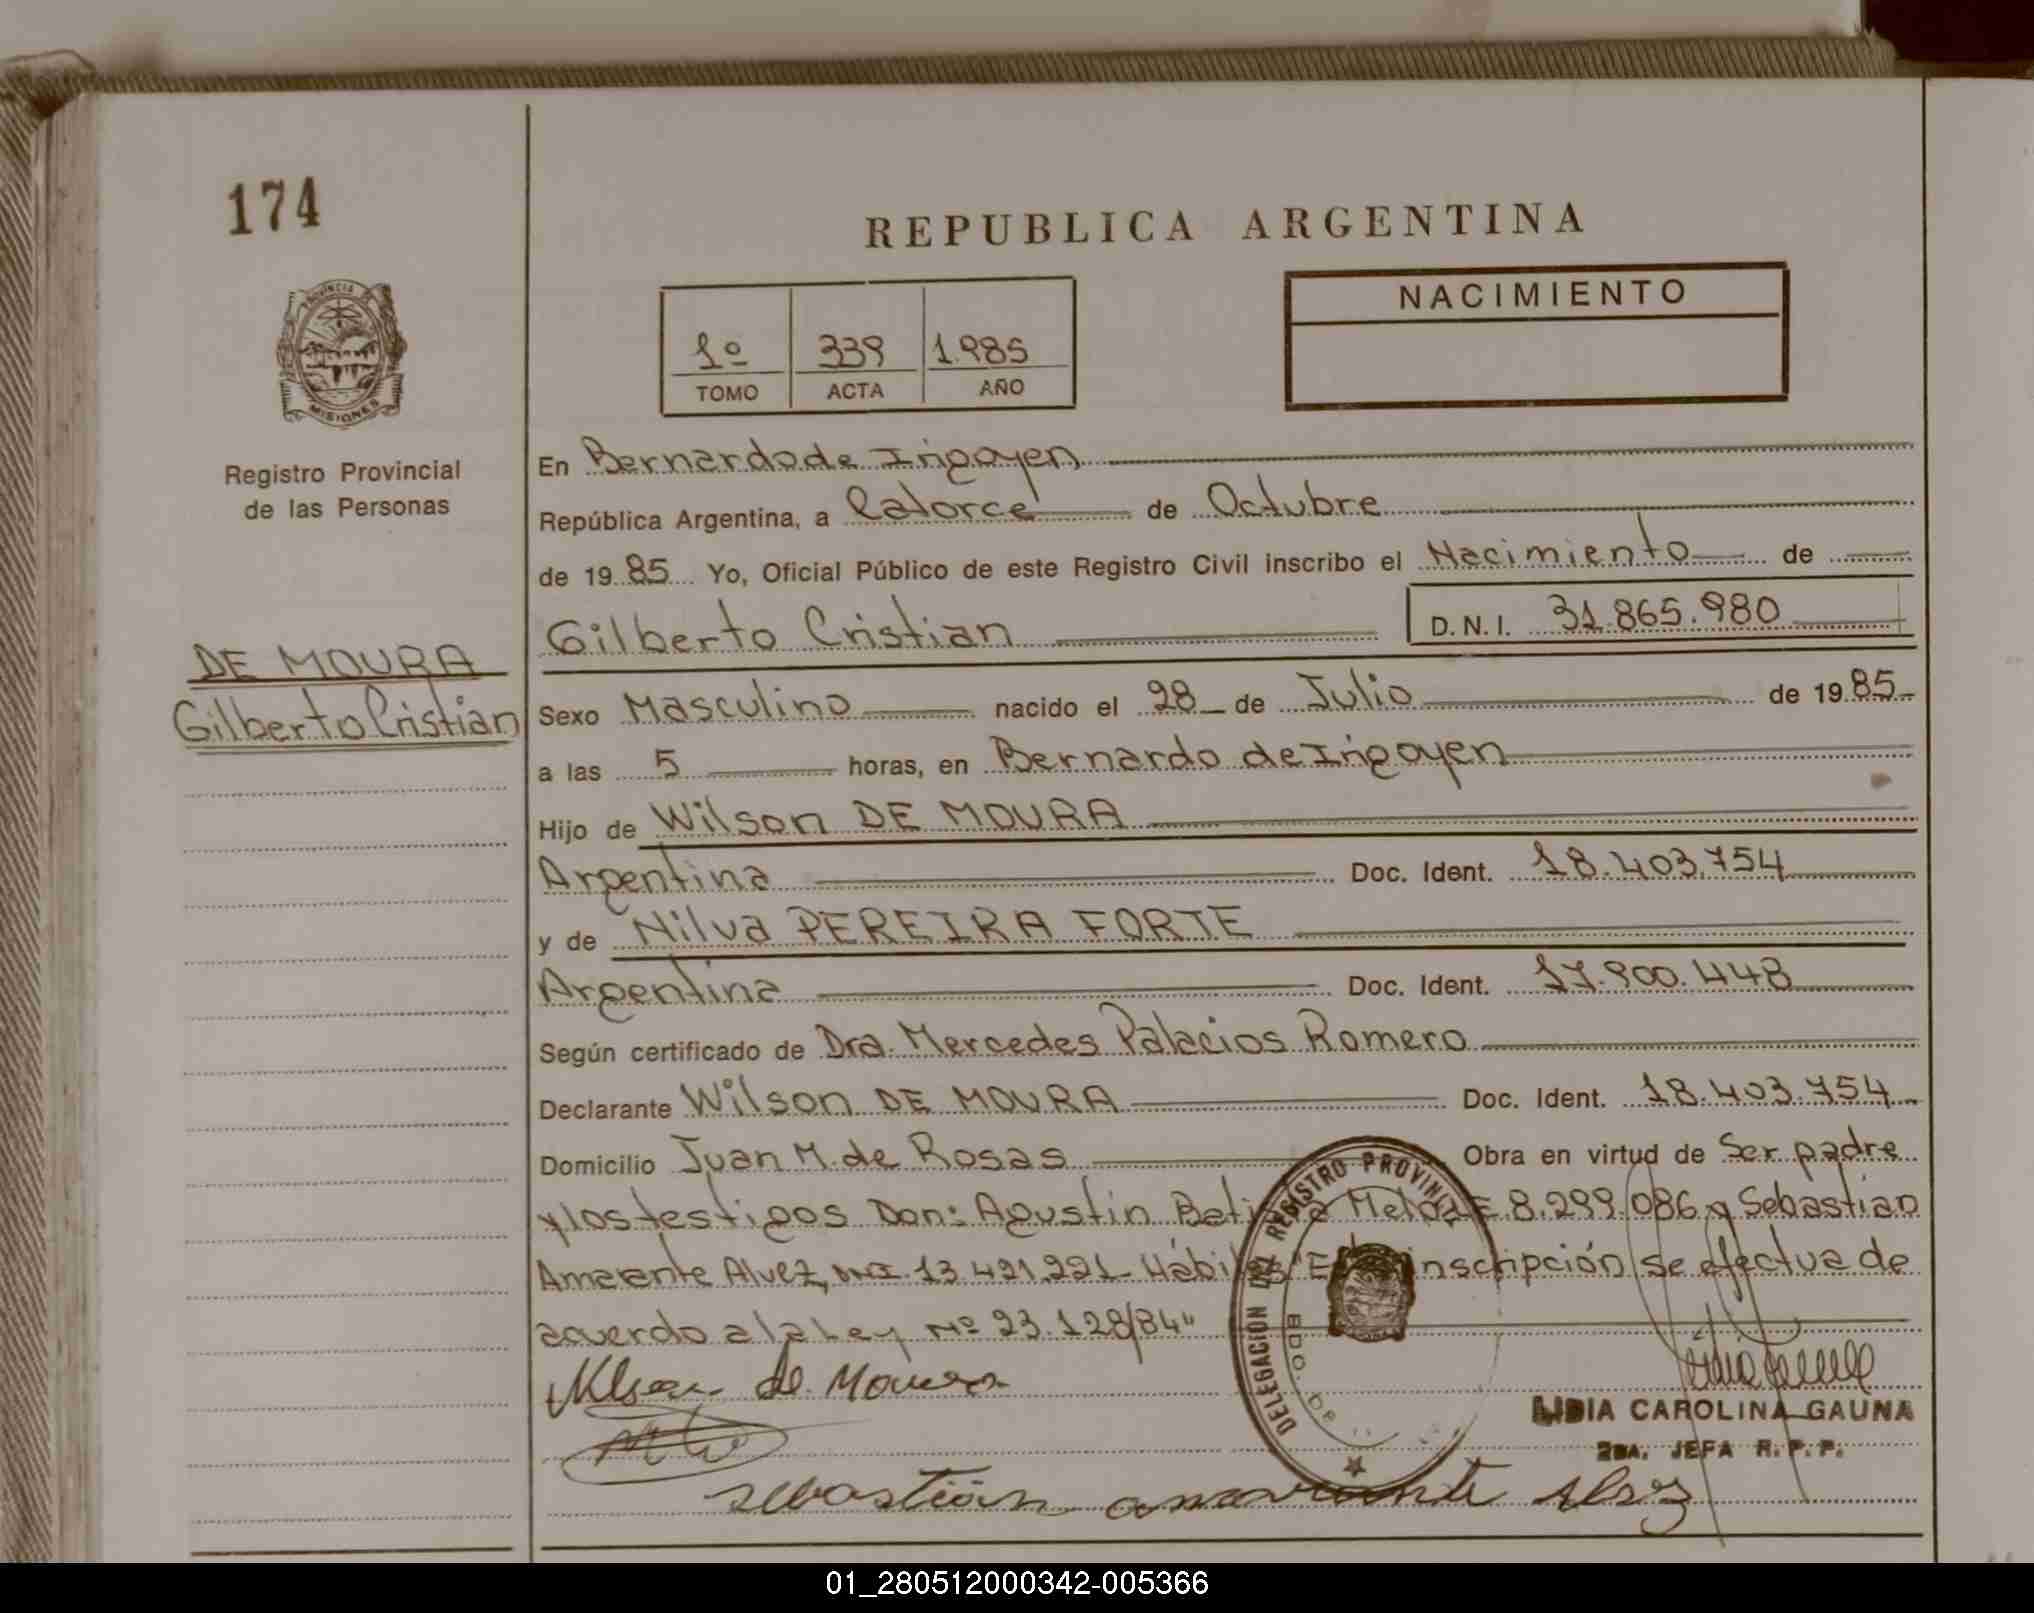 174
REPUBLICA ARGENTINA
PROVINCIA DE
MISIONES
NACIMIENTO
1º 339 1.985
TOMO ACTA AÑO
Registro Provincial
de las Personas
En Bernardo de Irigoyen
República Argentina, a Catorce de Octubre
de 19 85 Yo, Oficial Público de este Registro Civil inscribo el Nacimiento de
Gilberto Cristian D.N.I. 31.865.980
DE MOURA
Gilberto Cristian
Sexo Masculino nacido el 28 de Julio de 19 85
a las 5 horas, en Bernardo de Irigoyen
Hijo de Wilson DE MOURA
Argentina Doc. Ident. 18.403.754
y de Nilva PEREIRA FORTE
Argentina Doc. Ident. 17.900.448
Según certificado de Dra. Mercedes Palacios Romero
Declarante Wilson DE MOURA Doc. Ident. 18.403.754
Domicilio Juan M. de Rosas Obra en virtud de Ser padre
y los testigos Don: Agustin 8.299.086 y Sebastian
Amarante Alvez, DNI. 13.421.221 - Hábiles "Esta inscripción se efectua de
acuerdo a la Ley Nº 23.128/84"
Wilson de Moura
DELEGACION DEL REGISTRO PROVINCIAL
BDO. DE
LIDIA CAROLINA GAUNA
2DA. JEFA R.P.P.
sebastián amarante alvez
01_280512000342-005366